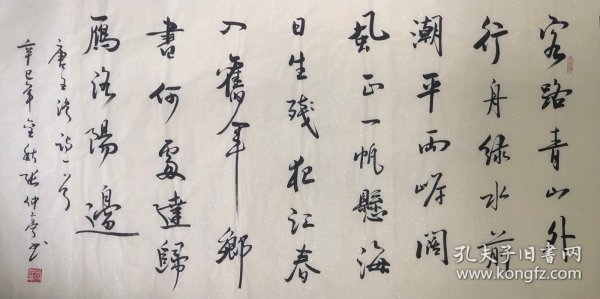 客路青山外
行舟绿水前
潮平两岸阔
風正一帆懸海
日生殘夜江春
入舊年鄉
書何處達歸
鴈洛陽邊
唐王湾诗一首
辛巳年金秋张仲亭书
孔夫子旧书网
www.kongfz.com